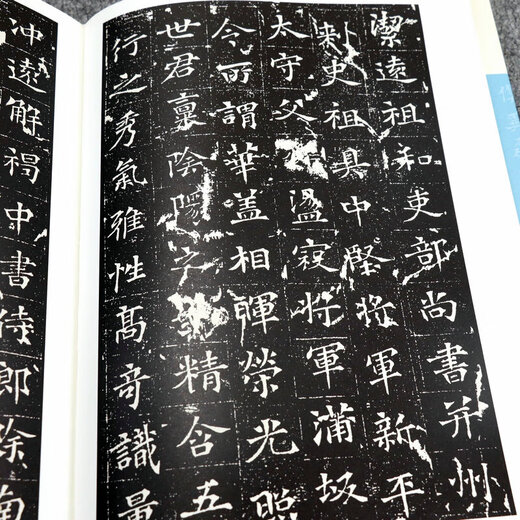 潔遠祖和吏部尚書并州
刺史祖具中堅將軍新平
太守父盪寇將軍蒲坂
令所謂華盖相暉榮光照
世君稟陰陽之精含五
行之秀氣雅性髙竒識量
沖遠解褐中書侍郎除南